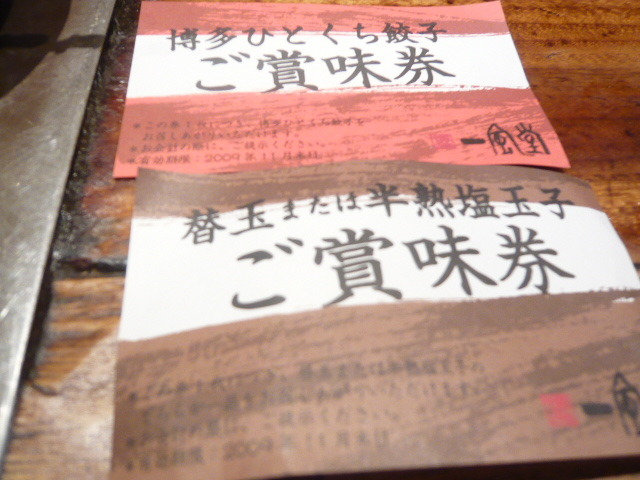 博多ひとくち餃子
ご賞味券
※この券1枚につき、博多ひとくち餃子を
お召しあがりいただけます。
※お会計の際に、ご提示ください。
※有効期限：2009年11月末日
一風堂
替玉または半熟塩玉子
ご賞味券
※この券1枚につき、替玉または半熟塩玉子の
※お会計の際に、ご提示ください。
※有効期限：2009年11月末日
一風堂